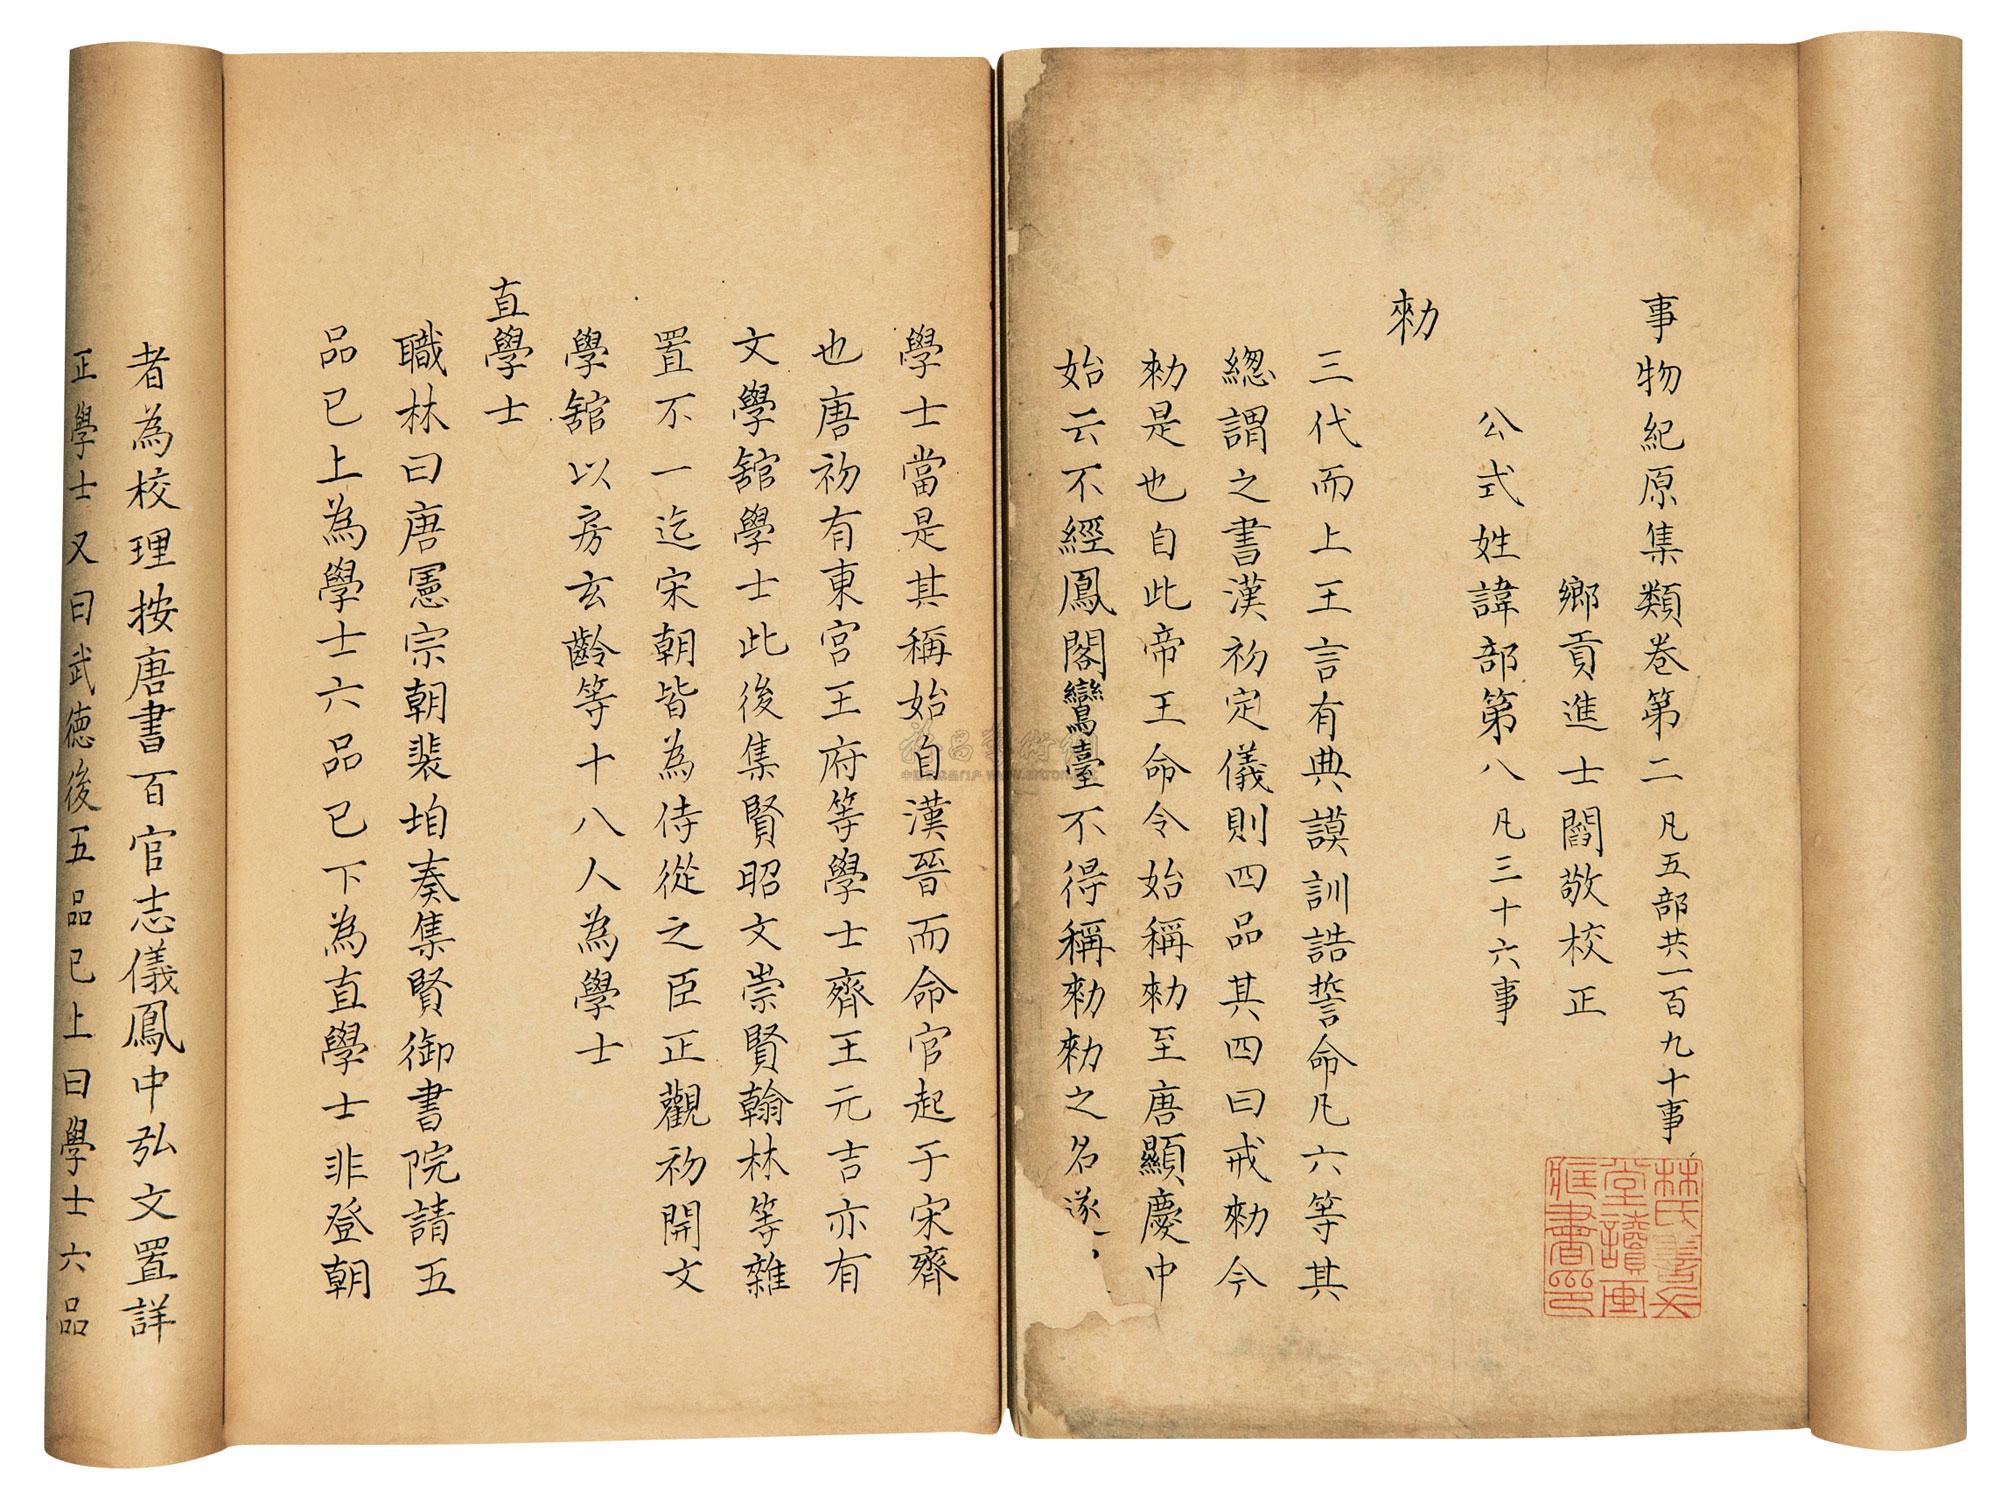 事物紀原集類卷第二 凡五部共一百九十事
鄉貢進士閻敬校正
公式姓諱部第八 凡三十六事
勑
三代而上王言有典謨訓誥誓命凡六等其
緫謂之書漢初定儀則四品其四曰戒勑今
勑是也自此帝王命令始稱勑至唐顯慶中
始云不經鳳閣鸞臺不得稱勑勑之名遂
學士當是其稱始自漢晉而命官起于宋齊
也唐初有東宮王府等學士齊王元吉亦有
文學舘學士此後集賢昭文崇賢翰林等雜
置不一迄宋朝皆為侍從之臣正觀初開文
學舘以房玄齡等十八人為學士
直學士
職林曰唐憲宗朝裴垍奏集賢御書院請五
品已上為學士六品已下為直學士非登朝
者為校理按唐書百官志儀鳳中弘文置詳
正學士又曰武德後五品已上曰學士六品